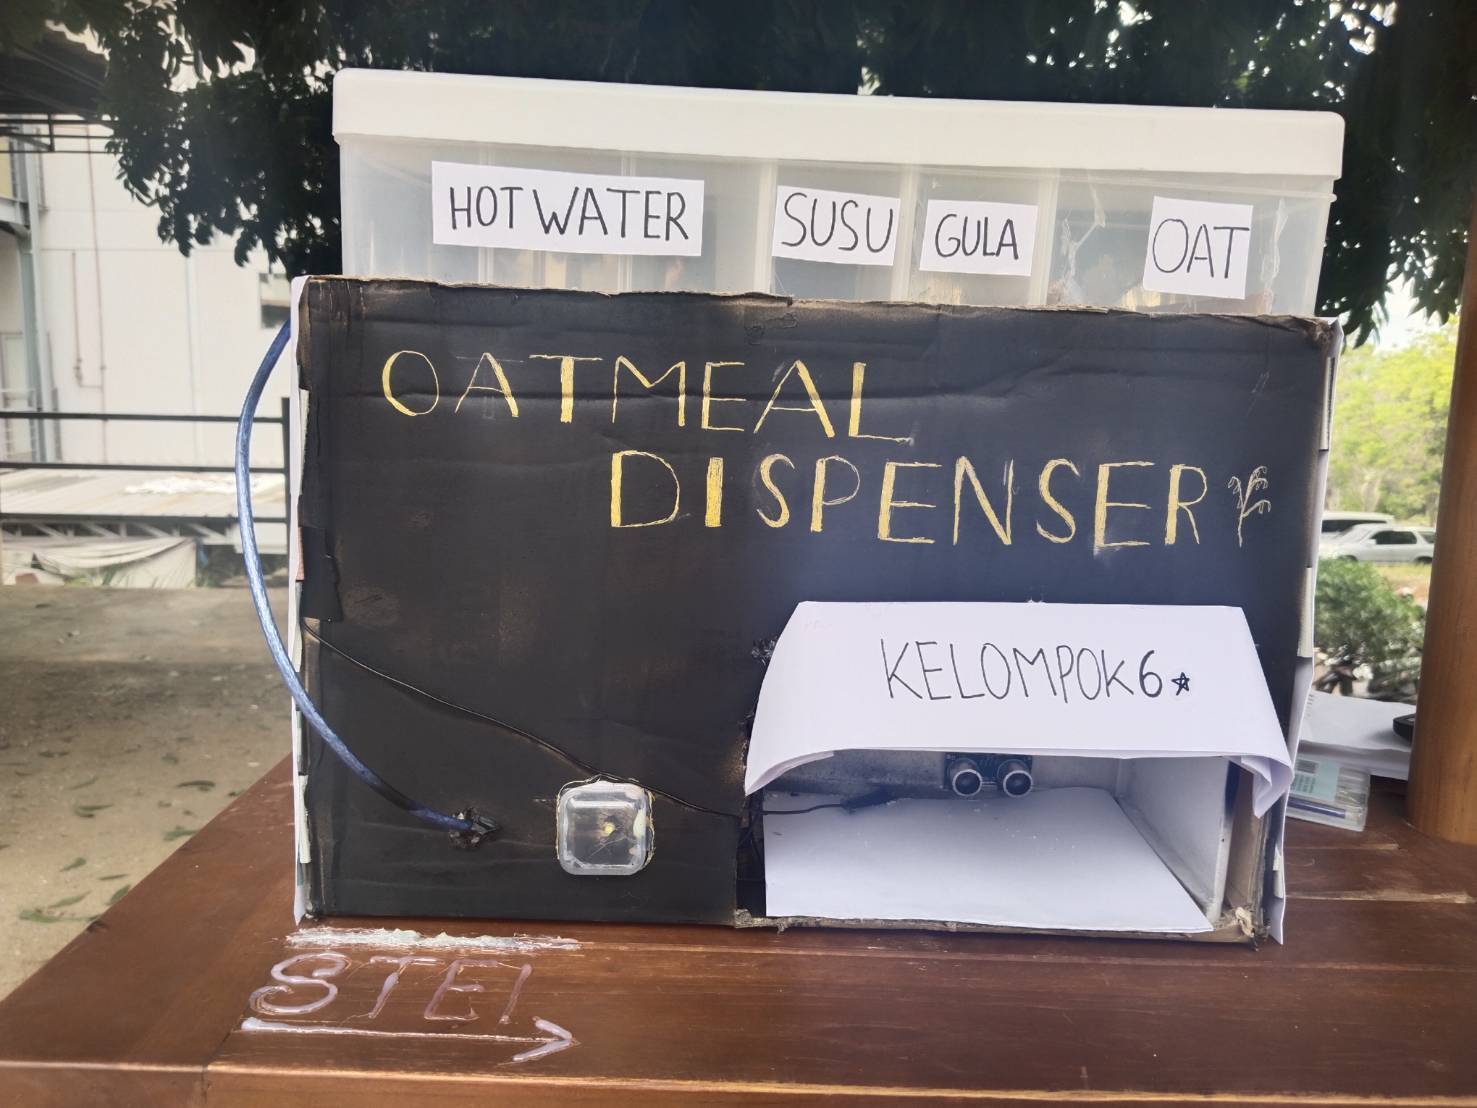 HOT WATER
SUSU
GULA
OAT
OATMEAL
DISPENSER
KELOMPOK 6
STEI